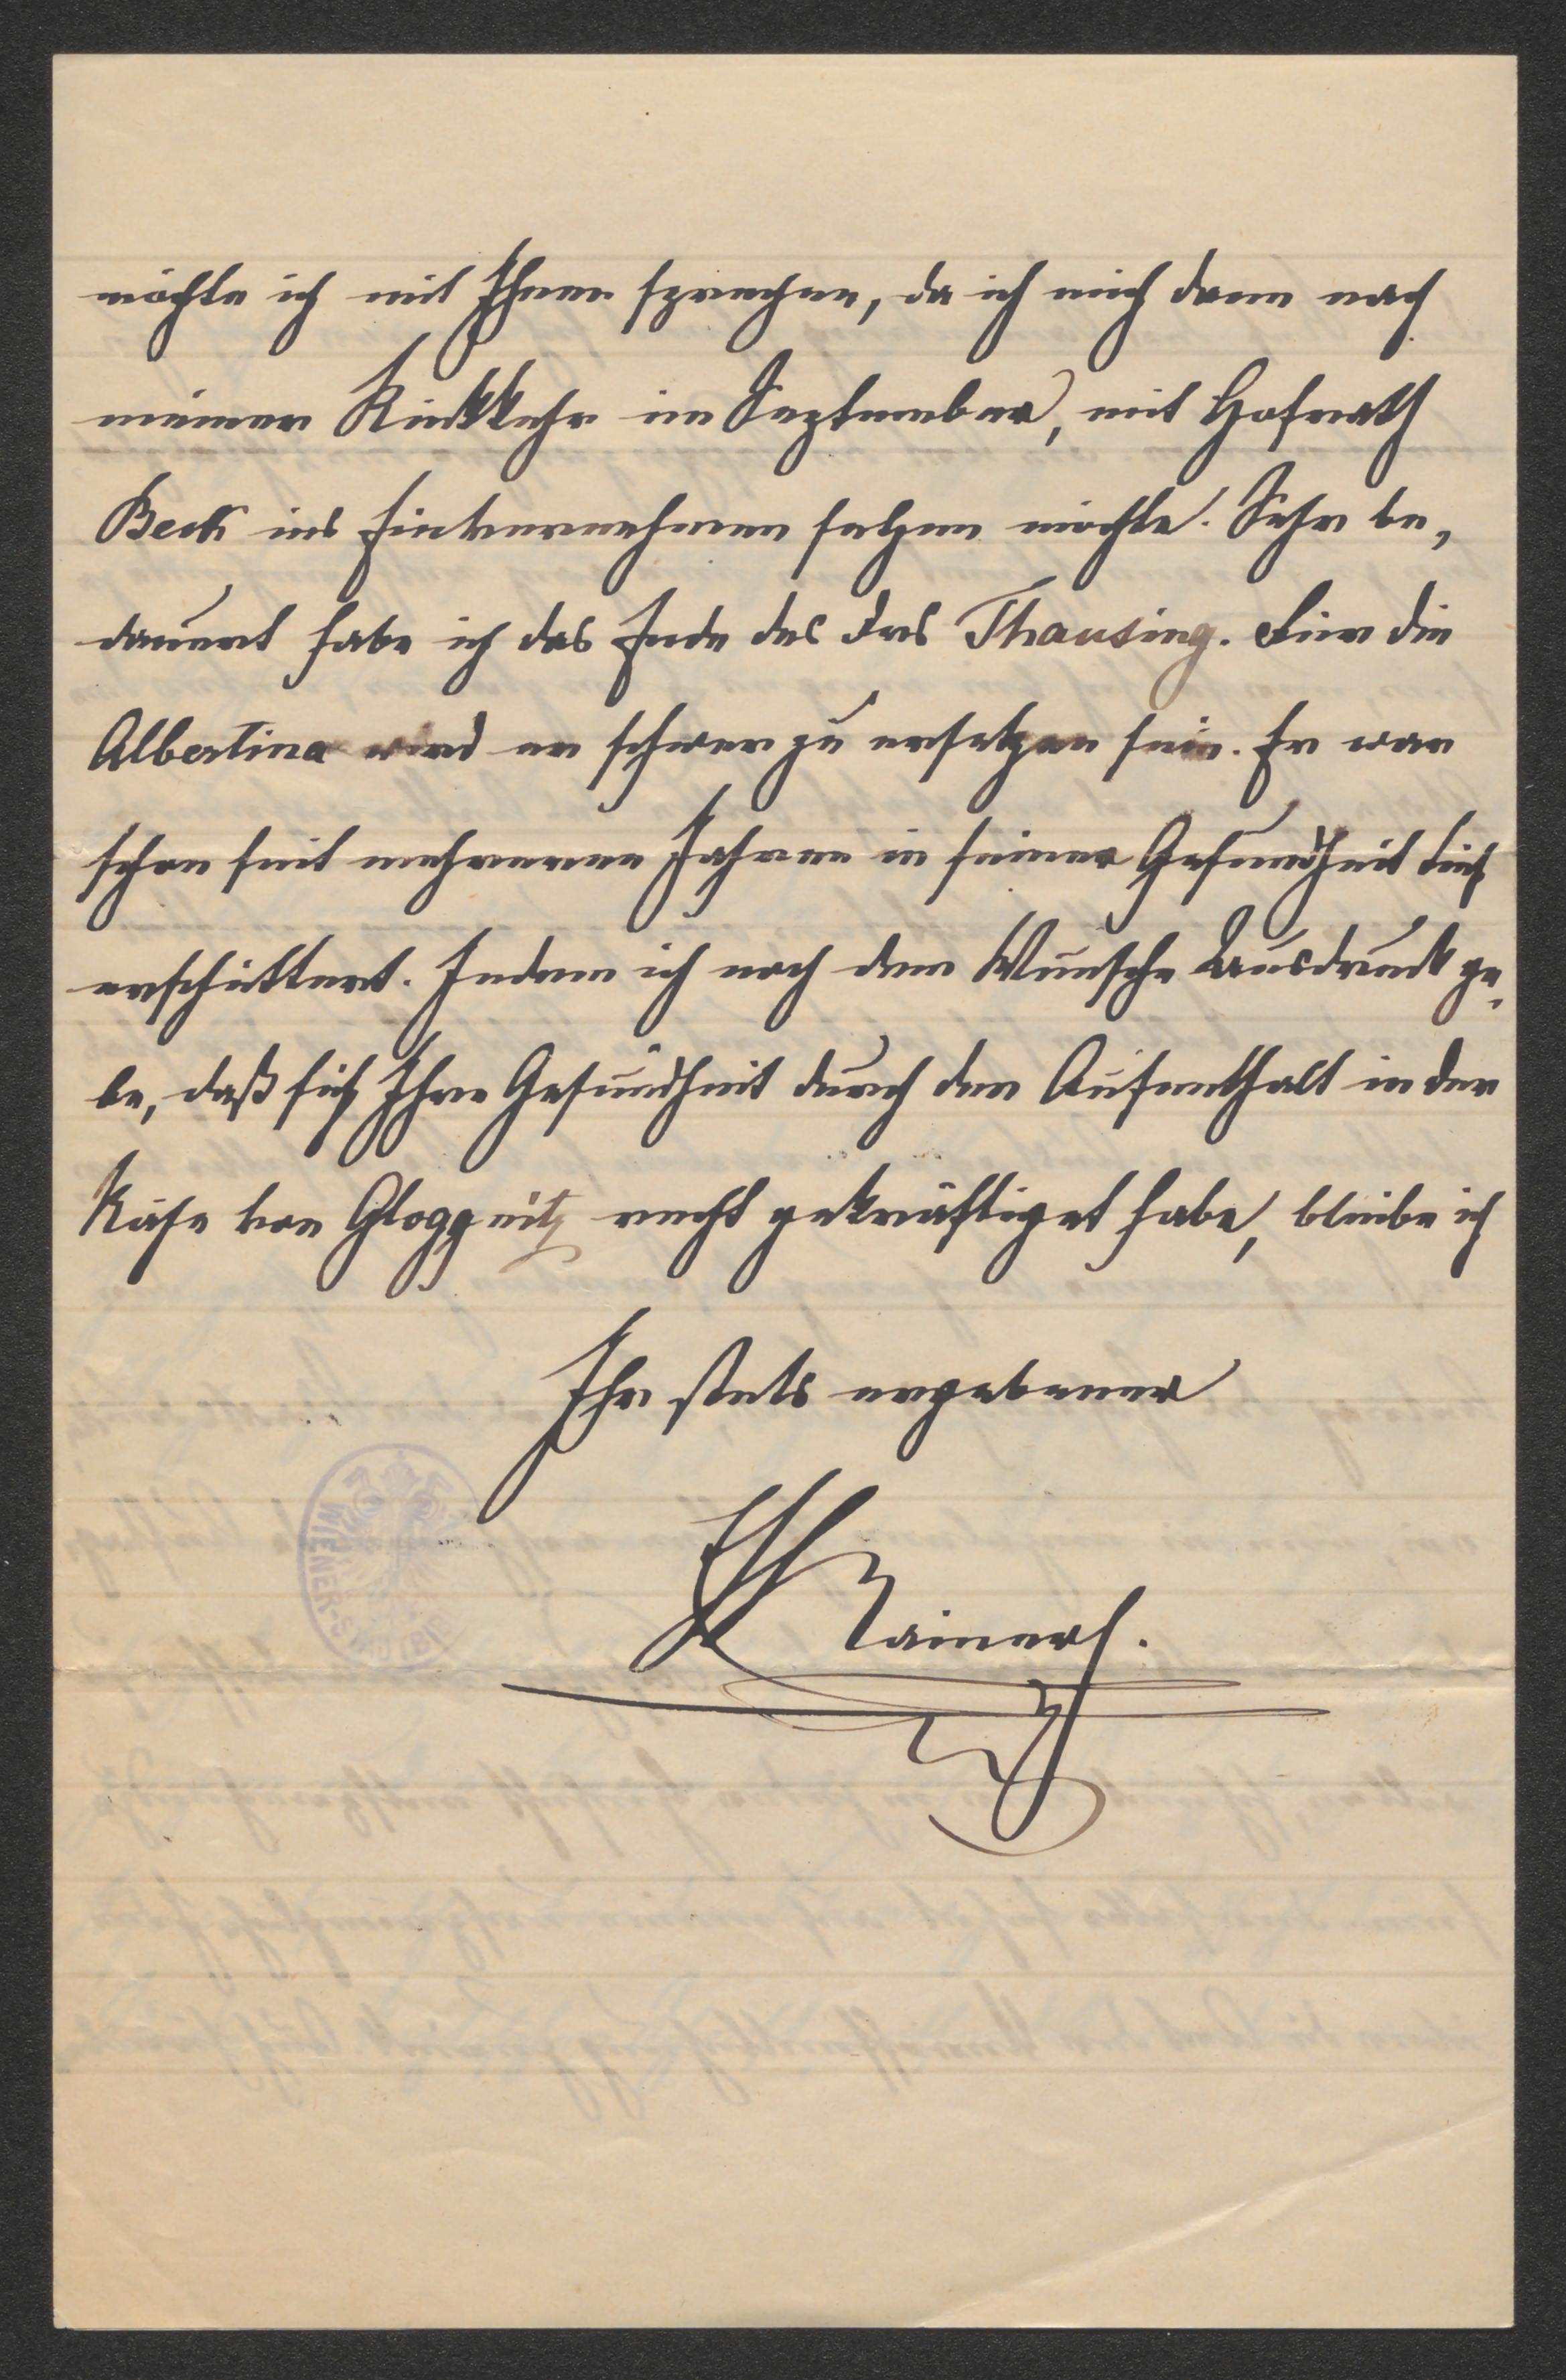 möchte ich mit Ihnen sprechen, da ich mich dann nach
meiner Rückkehr im September, mit Hofrath
Beck ins Einvernehmen setzen möchte. Sehr be,
dauert habe ich das Ende des Drs Thausing. Für die
Albertina wird er schwer zu ersetzen sein. Er war
schon seit mehreren Jahren in seiner Gesundheit tief
erschüttert. Indem ich noch dem Wunsche Ausdruck ge,
be, daß sich Ihre Gesundheit durch den Aufenthalt in der
Nähe von Gloggnitz recht gekräftiget habe, bleibe ich
Ihr stets ergebener
EH Rainer.
WIENER-STADTBIB